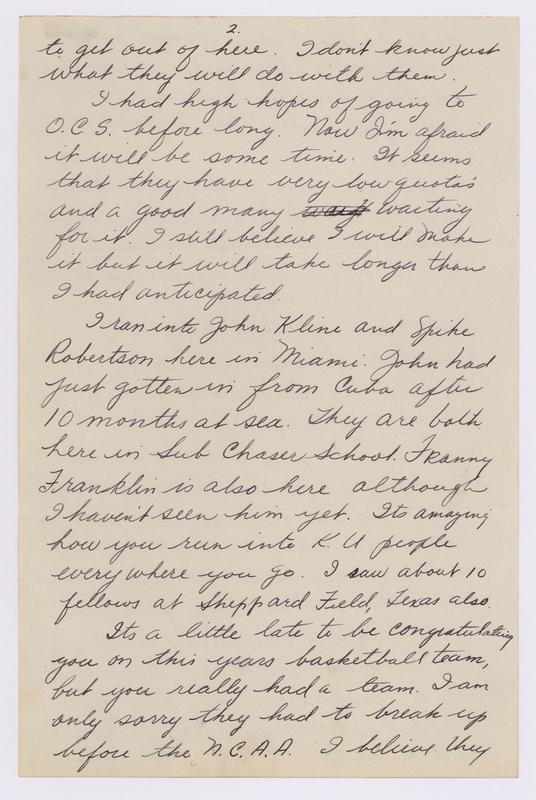 2.
to get out of here. I don't know just
what they will do with them.
I had high hopes of going to
O.C.S. before long. Now I'm afraid
it will be some time. It seems
that they have very low quota's
and a good many waiting
for it. I still believe I will make
it but it will take longer than
I had anticipated.
I ran into John Kline and Spike
Robertson here in Miami. John had
just gotten in from Cuba after
10 months at sea. They are both
here in Sub Chaser School. Franny
Franklin is also here although
I haven't seen him yet. Its amazing
how you run into K.U people
everywhere you go. I saw about 10
fellows at Sheppard Field, Texas also.
Its a little late to be congratulating
you on this years basketball team,
but you really had a team. I am
only sorry they had to break up
before the N.C.A.A. I believe they